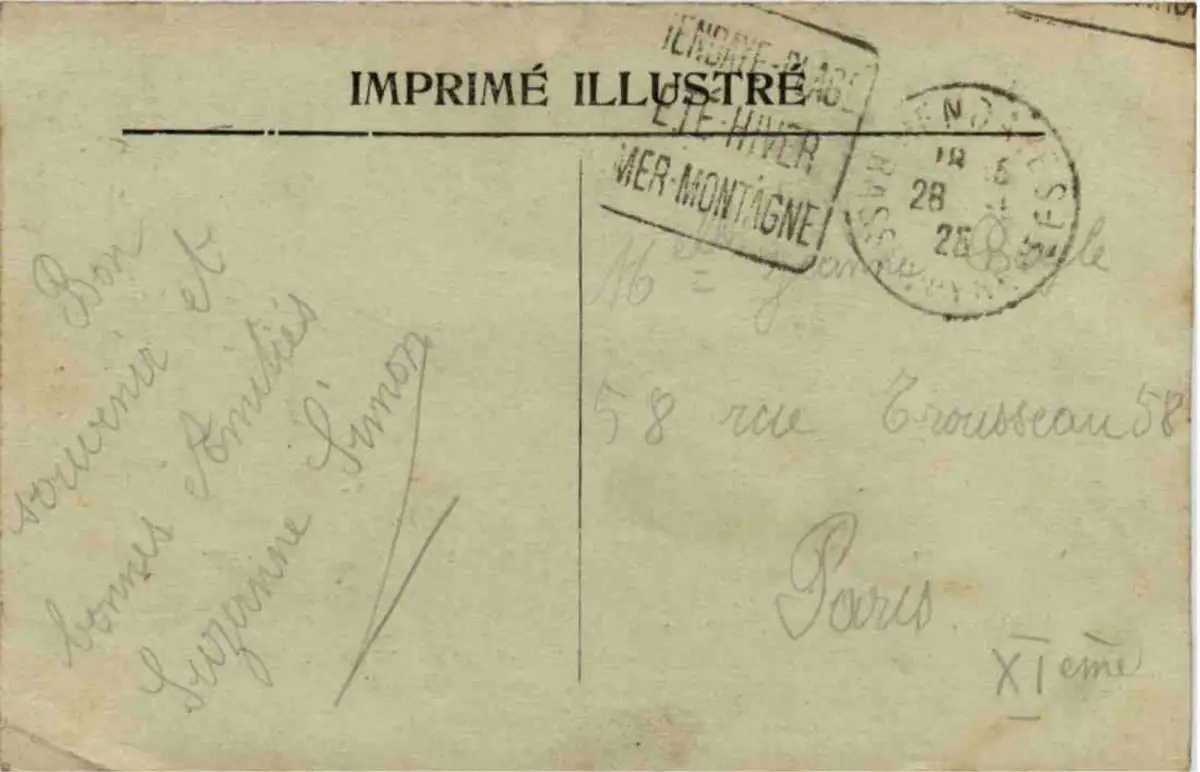 IMPRIMÉ ILLUSTRÉ
HENDAYE-PLAGE
ÉTÉ-HIVER
MER-MONTAGNE
HENDAYE
18
28
BASSES PYRENEES
Bon
souvenir et
bonnes Amitiés
Suzanne Simon
Melle Jeanne
58 rue Trousseau 58
Paris
XIème